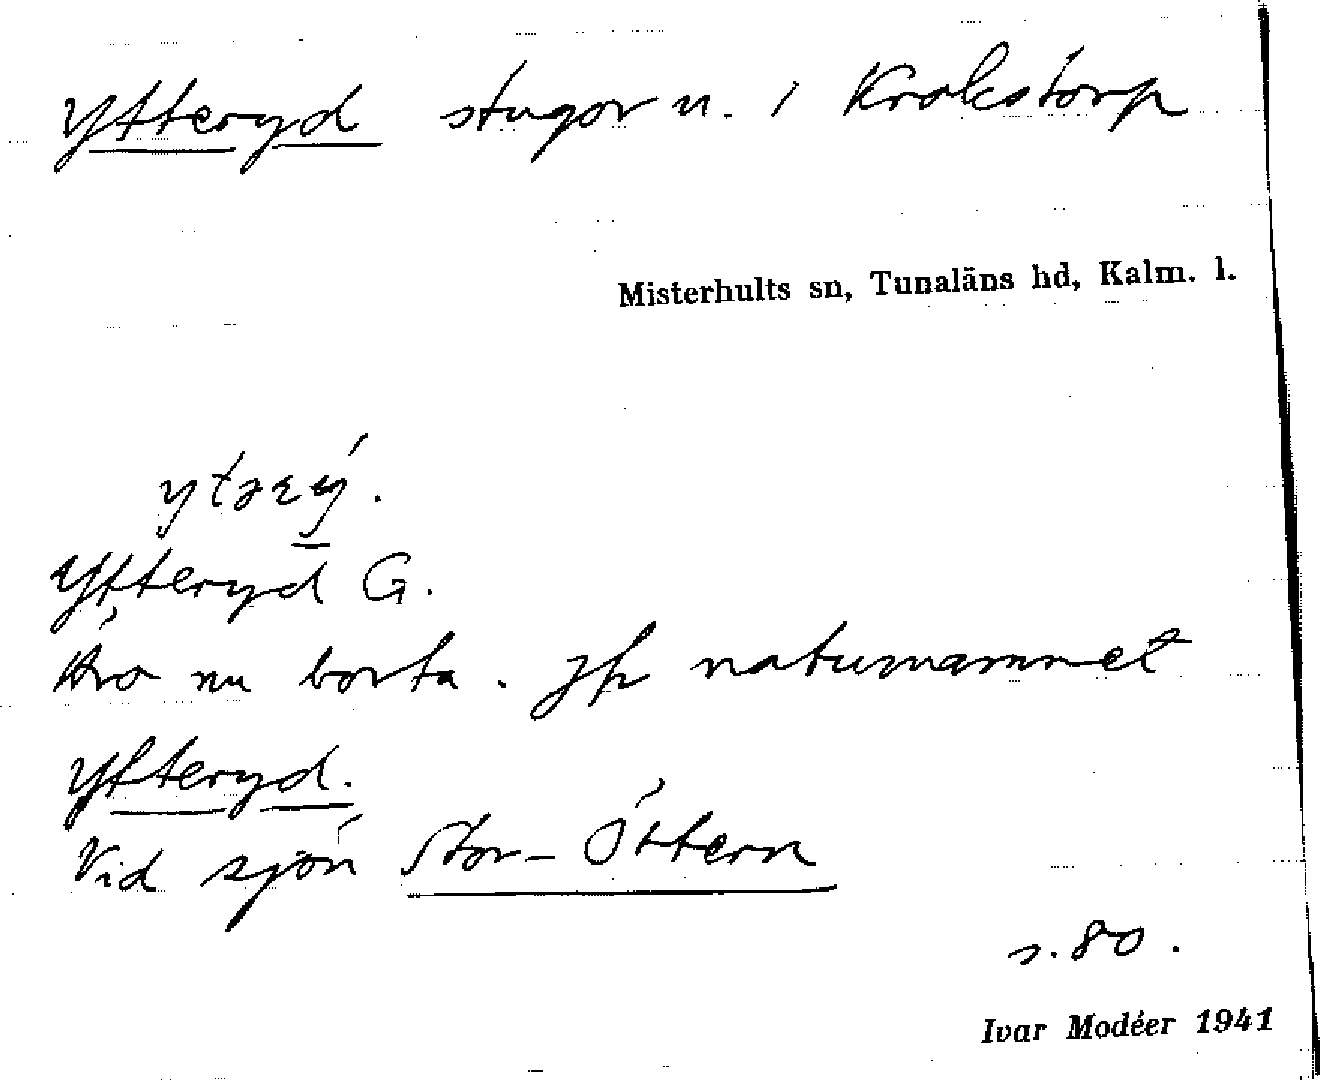 Ytteryd stugor u. / Krokstorp
Misterhults sn, Tunaläns hd, Kalm. l.
Ytteryd G.
Äro nu borta. Jfr naturnamnet
Ytteryd.
Vid sjön Stor-Öttern
s. 80.
Ivar Modéer 1941